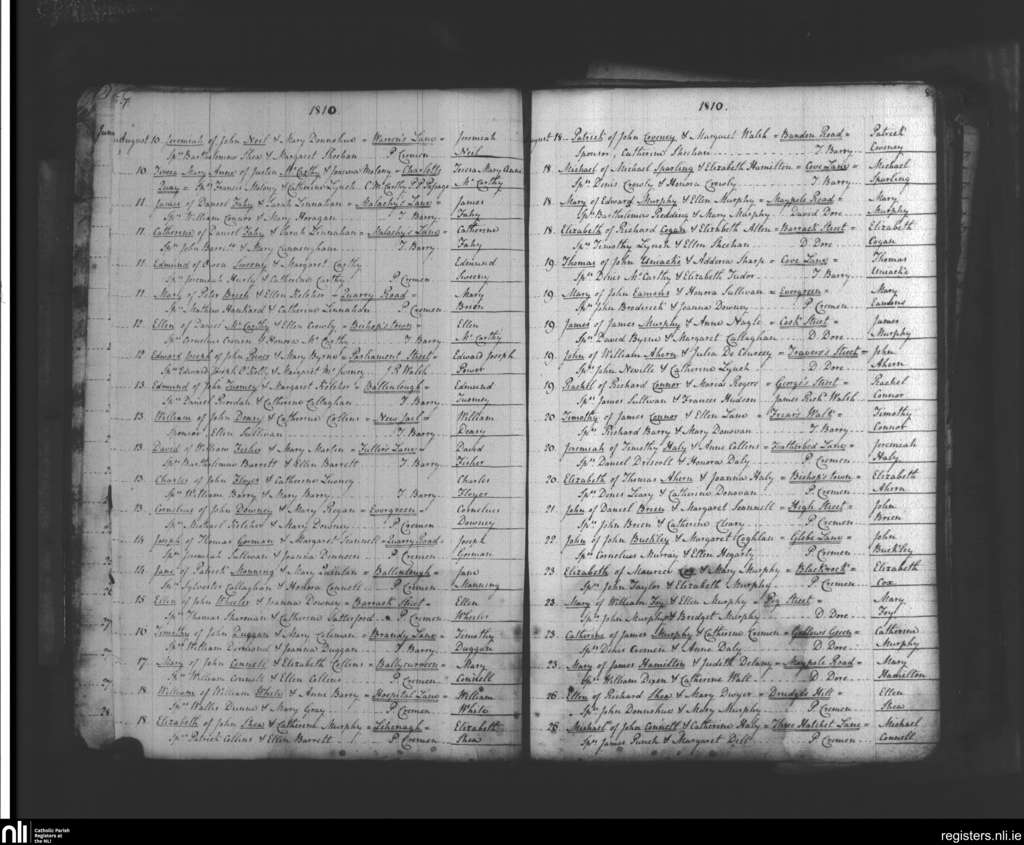 1810
August 10. Jeremiah of John Neil & Mary Donnohue = Warren's Lane = Jeremiah
Spn Bartholomew Shea & Margaret Sheehan P Cremen Neil
10. Teresa Mary Anne of Justin McCarthy & Joanna Molony = Charlotte Teresa Mary Anne
Quay = Spn Francis Molony & Catherine Lynch C McCarthy P.P. Passage McCarthy
11. James of Daniel Fahy & Sarah Linnahan = Malachy's Lane = James
Spn William Connor & Mary Horagan T Barry Fahy
11. Catherine of Daniel Fahy & Sarah Linnahan = Malachy's Lane = Catherine
Spn John Barrett & Mary Cunningham T Barry Fahy
11. Edmund of Owen Sweeny & Margaret Carthy Edmund
Spn Jeremiah Hurly & Catherine Carthy P Cremen Sweeny
11. Mary of Peter Brien & Ellen Kelcher = Quarry Road = Mary
Spn Mathew Hankard & Catherine Linnahan P Cremen Brien
12. Ellen of Daniel McCarthy & Ellen Crowly = Bishop's town = Ellen
Spn Cornelius Cronin & Honora McCarthy T Barry McCarthy
12. Edward Joseph of John Power & Mary Byrne = Parliament Street = Edward Joseph
Spn Edward Joseph & Margaret McSwiney J R Walsh Power
13. Edmund of John Twomey & Margaret Kelcher = Ballinlough = Edmund
Spn Daniel Riordan & Catherine Callaghan T Barry Twomey
13. William of John Deasy & Catherine Collins = New Jail = William
Sponsor Ellen Sullivan T Barry Deasy
13. David of William Fisher & Mary Martin = Fuller's Lane = David
Spn Bartholomew Barrett & Ellen Barrett T Barry Fisher
13. Charles of John Floyer & Catherine Twomey Charles
Spn William Barry & Mary Barry T Barry Floyer
13. Cornelius of John Downey & Mary Regan = Evergreen = Cornelius
Spn Michael Kelcher & Mary Downey P Cremen Downey
14. Joseph of Thomas Gorman & Margaret Scannell = Quarry Road = Joseph
Spn Jeremiah Sullivan & Joanna Dennison P Cremen Gorman
14. Jane of Patrick Manning & Mary Quinlan = Ballinlough = Jane
Spn Sylvester Callaghan & Honora Connell P Cremen Manning
15. Ellen of John Wheeler & Joanna Downey = Barrack Street = Ellen
Spn Thomas Sherman & Catherine Satterford P Cremen Wheeler
16. Timothy of John Duggan & Mary Coleman = Brandy Lane = Timothy
Spn William Desmond & Joanna Duggan T Barry Duggan
17. Mary of John Connell & Elizabeth Collins = Ballycurreen = Mary
Spn William Connell & Ellen Collins P Cremen Connell
18. William of William White & Anne Barry = Hospital Lane = William
Spn Walter Dunne & Mary Gray P Cremen White
18. Elizabeth of John Shea & Catherine Murphy = Lehenagh = Elizabeth
Spn Patrick Collins & Ellen Barrett P Cremen Shea
1810.
August 18. Patrick of John Coveney & Margaret Walsh = Bandon Road = Patrick
Sponsor, Catherine Sheehan T Barry Coveney
18. Michael of Michael Sparling & Elizabeth Hamilton = Cove Lane = Michael
Spn Denis Crowly & Honora Crowly T Barry Sparling
18. Mary of Edward Murphy & Ellen Murphy = Maypole Road = Mary
Spn Bartholomew Redding & Mary Murphy David Dore Murphy
18. Elizabeth of Richard Cogan & Elizabeth Allen = Barrack Street = Elizabeth
Spn Timothy Lynch & Ellen Sheehan D Dore Cogan
19. Thomas of John Uniacke & Adderia Sharp = Cove Lane = Thomas
Spn Denis McCarthy & Elizabeth Tudor T Barry Uniacke
19. Mary of John Eamons & Honora Sullivan = Evergreen = Mary
Spn John Broderick & Joanna Downey P Cremen Eamons
19. James of James Murphy & Anne Nagle = Cook Street = James
Spn David Byrne & Margaret Callaghan D Dore Murphy
19. John of William Ahern & Julia De Courcy = Travers's Street = John
Spn John Neville & Catherine Lynch D Dore Ahern
19. Rachel of Richard Connor & Maria Rogers = George's Street = Rachel
Spn James Sullivan & Frances Hudson James Richd Walsh Connor
20. Timothy of James Connor & Ellen Lane = Friar's Walk = Timothy
Spn Richard Barry & Mary Donovan T Barry Connor
20. Jeremiah of Timothy Haly & Anne Collins = Featherbed Lane = Jeremiah
Spn Daniel Driscoll & Honora Daly P Cremen Haly
20. Elizabeth of Thomas Ahern & Joanna Haly = Bishop's town = Elizabeth
Spn Denis Leary & Catherine Donovan P Cremen Ahern
21. John of Daniel Brien & Margaret Scannell = High Street = John
Spn John Brien & Catherine Cleary P Cremen Brien
22. John of John Buckley & Margaret Coghlan = Globe Lane = John
Spn Cornelius Murray & Ellen Hegarty P Cremen Buckley
23. Elizabeth of Maurice Cox & Mary Murphy = Blackrock = Elizabeth
Spn John Taylor & Elizabeth Murphy P Cremen Cox
23. Mary of William Foy & Ellen Murphy = Pig Street = Mary
Spn John Murphy & Bridget Murphy D Dore Foy
23. Catherine of James Murphy & Catherine Cremen = Gallows Green = Catherine
Spn Denis Cremen & Anne Daly D Dore Murphy
23. Mary of James Hamilton & Judith Delany = Maypole Road = Mary
Spn William Dixon & Catherine Wall D Dore Hamilton
26. Ellen of Richard Shea & Mary Dwyer = Drudy's Hill = Ellen
Spn John Donnohue & Mary Murphy P Cremen Shea
26. Michael of John Connell & Catherine Haly = Three Hatchet Lane = Michael
Spn James Punch & Margaret Dill P Cremen Connell
nli Catholic Parish
Registers at
the NLI
registers.nli.ie